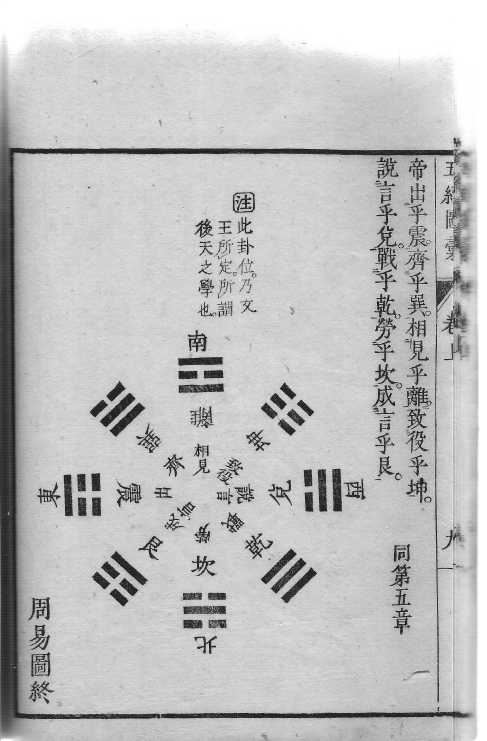 五經圖彙 卷上
九
帝出乎震。齊乎巽。相見乎離。致役乎坤。
說言乎兌。戰乎乾。勞乎坎。成言乎艮。
同第五章
注此卦位。乃文
王所定。所謂
後天之學也。
南
離
相見
坤
致役
西
兌
說言
乾
戰
北
坎
勞
艮
成言
東
震
出
巽
齊
周易圖終